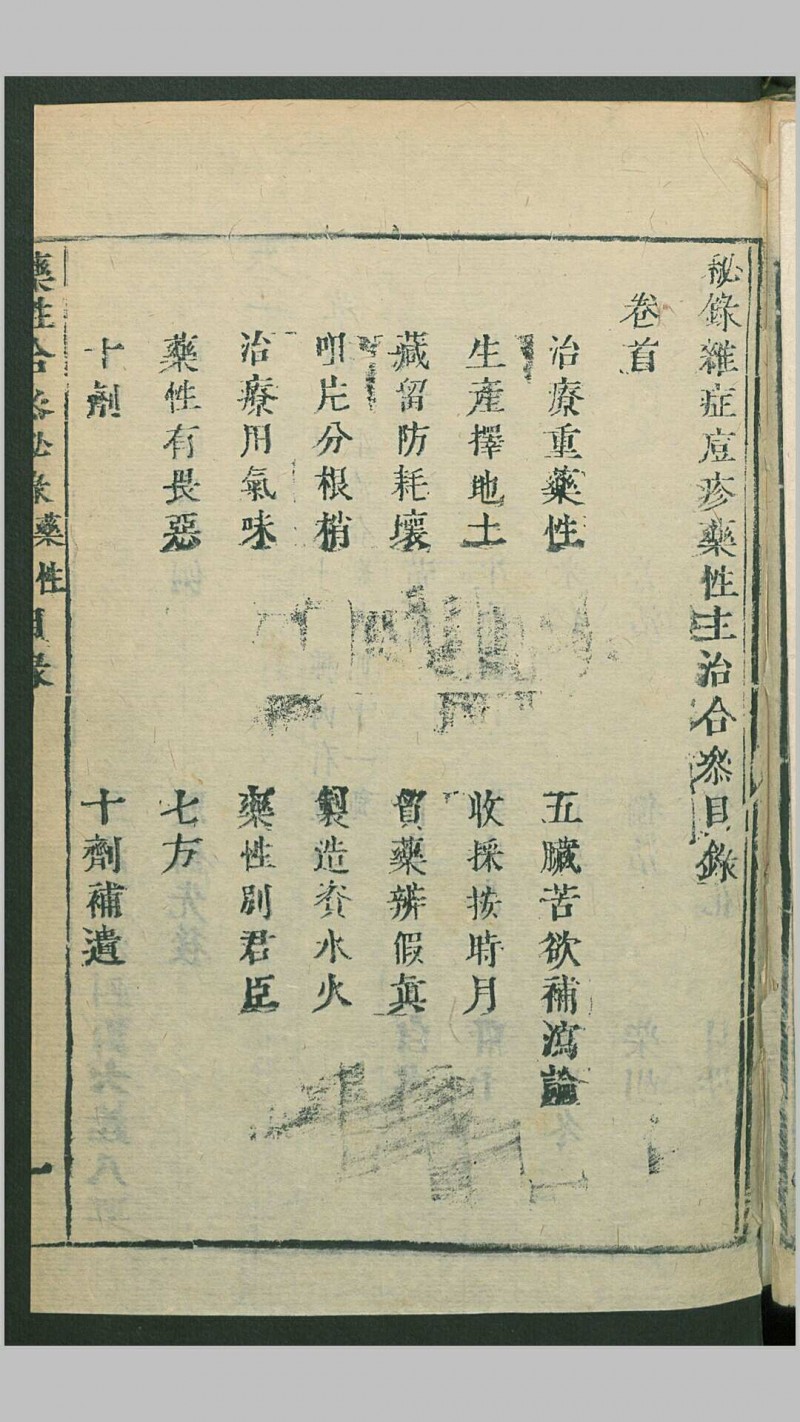 秘錄雜症痘疹藥性主治合叅目錄
卷首
治療重藥性
五臟苦欲補瀉論
生產擇地土
收採按時月
藏留防耗壞
貿藥辨假真
咀片分根梢
製造資水火
治療用氣味
藥性別君臣
藥性有畏惡
七方
十劑
十劑補遺
藥性合叅秘錄 藥性目錄 一